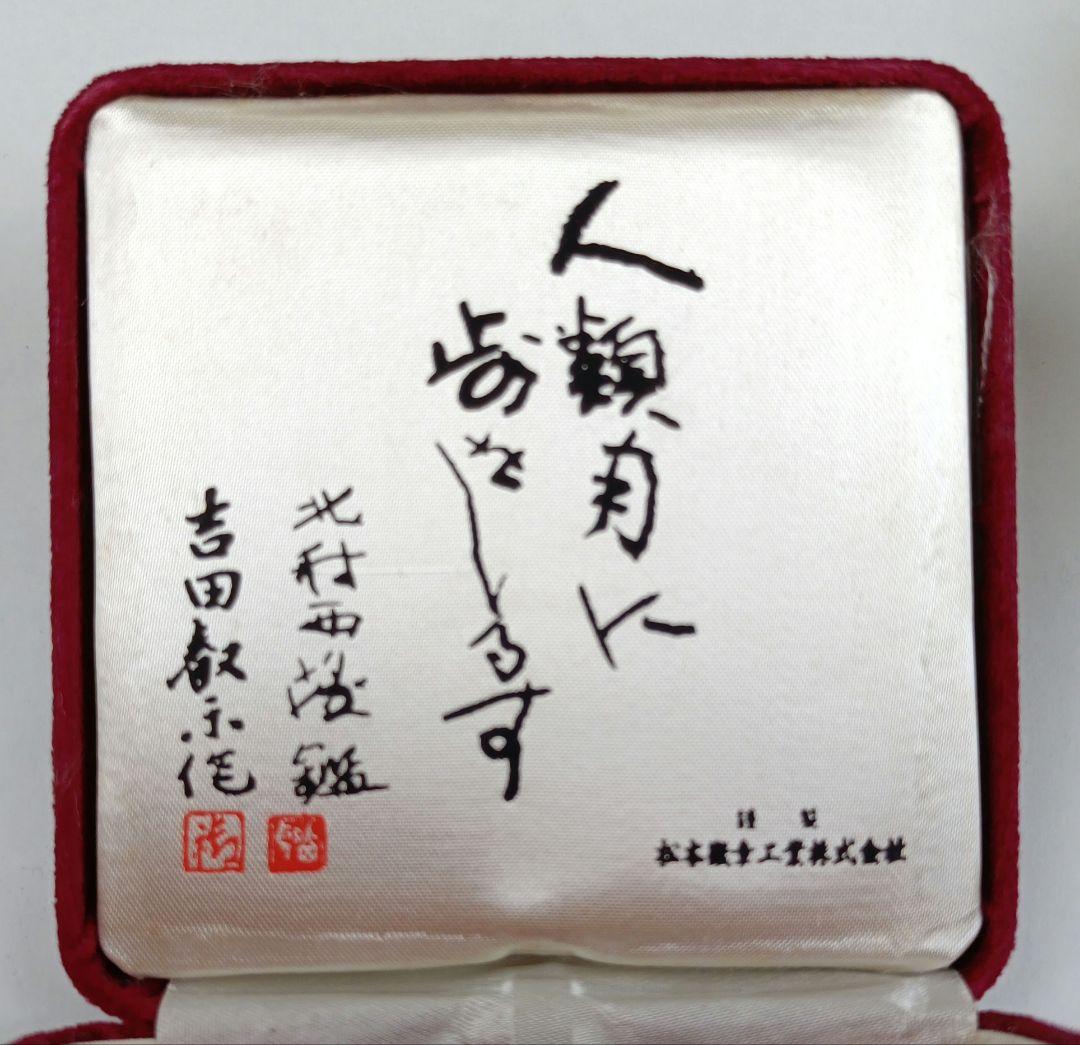 人類月に
歩をしるす
北村西望鑑
吉田叡示作
謹製
松本徽章工業株式会社